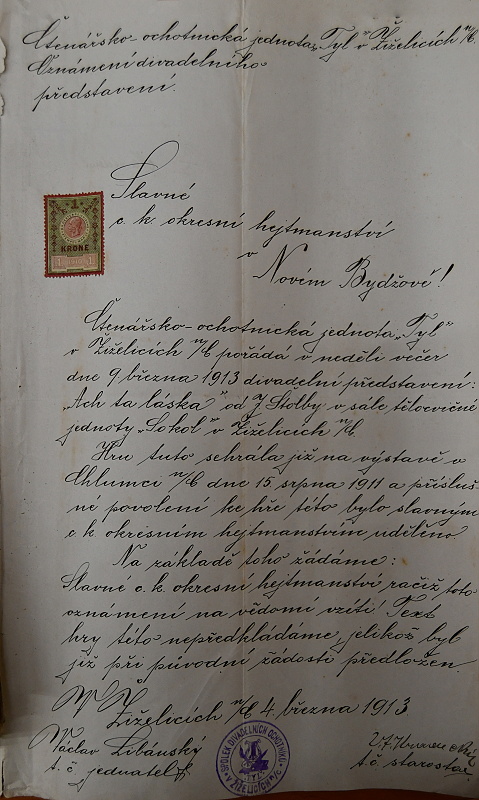 Čtenářsko-ochotnická jednota „Tyl“ v Žiželicích n/C.
Oznámení divadelního
představení.
Slavné
c. k. okresní hejtmanství
v
Novém Bydžově!
1
KRONE
Čtenářsko-ochotnická jednota „Tyl“
v Žiželicích n/C pořádá v neděli večer
dne 9 března 1913 divadelní představení:
„Ach ta láska“ od J Štolby v sále tělocvičné
jednoty „Sokol“ v Žiželicích n/C.
Hru tuto sehrála již na výstavě v
Chlumci n/C dne 15 srpna 1911 a přísluš-
né povolení ke hře této bylo slavným
c k okresním hejtmanstvím uděleno
Na základě toho žádáme:
Slavné c. k. okresní hejtmanství račiž toto
oznámení na vědomí vzíti! Text
hry této nepředkládáme, jelikož byl
již při původní žádosti předložen.
V Žiželicích n/C 4. března 1913
Václav Libánský
t. č. jednatel
t. č. starosta
SPOLEK DIVADELNÍCH OCHOTNÍKŮ
„TYL“
V ŽIŽELICÍCH N/C